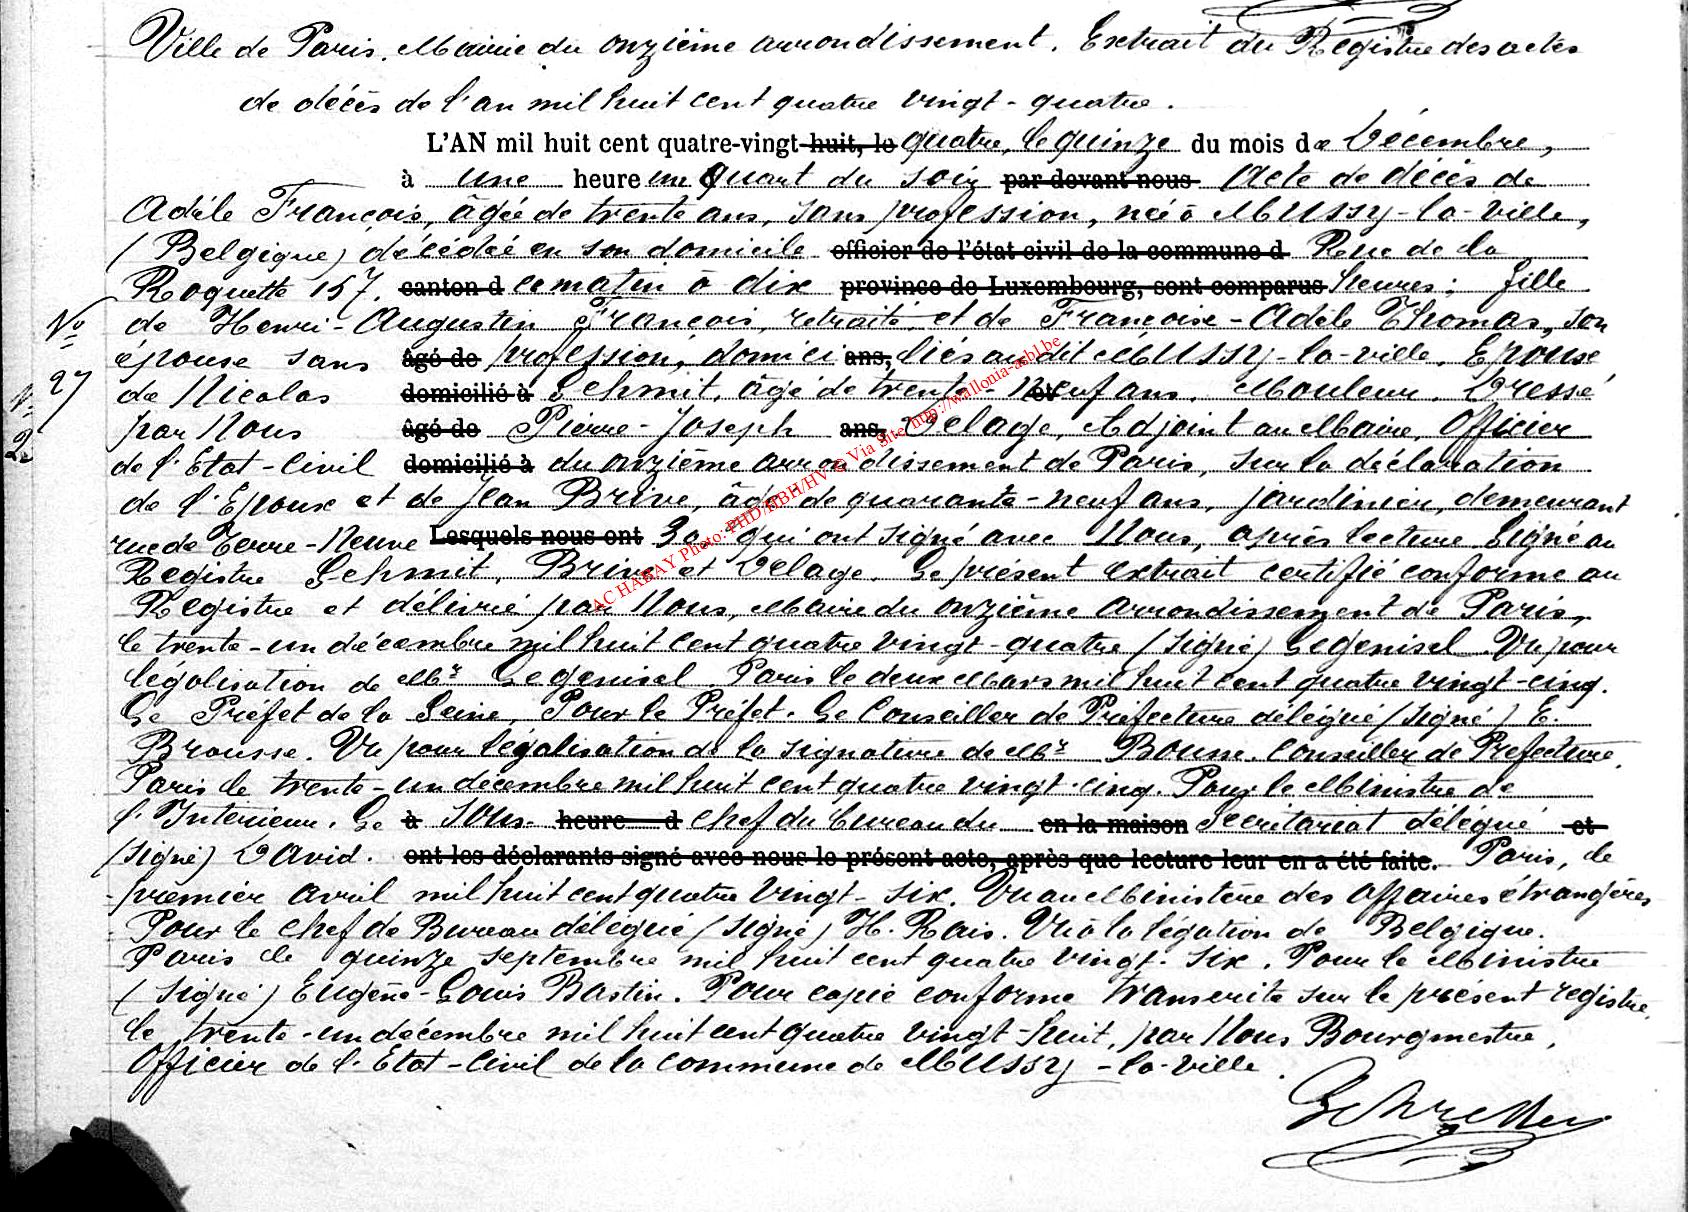 Ville de Paris. Mairie du onzième arrondissement. Extrait du Registre des actes
de décès de l'an mil huit cent quatre vingt-quatre.
L'AN mil huit cent quatre-vingt-huit, le quatre, le quinze du mois de Décembre,
à une heure un quart du soir par devant nous Acte de décès de
Adèle François, âgée de trente ans, sans profession, née à Mussy-la-ville,
(Belgique) décédée en son domicile officier de l'état civil de la commune d Rue de la
Roquette 157, canton d ce matin à dix province de Luxembourg, sont comparus heures; fille
de Henri-Augustin François, retraité, et de Françoise-Adèle Thomas, son
épouse sans âgé de profession, domici ans, liés au dit Mussy-la-ville. Epouse
de Nicolas domicilié à Schmit, âgé de trente-neuf ans. Mouleur. Dressé
par Nous âgé de Pierre-Joseph ans, Delage, Adjoint au Maire, Officier
de l'Etat-Civil domicilié à du onzième arrondissement de Paris, sur la déclaration
de l'Epoux et de Jean Brive, âgé de quarante-neuf ans, jardinier, demeurant
rue de Terre-Neuve Lesquels nous ont 30 qui ont signé avec Nous, après lecture. Signé au
Registre Schmit, Brive et Delage. Le présent extrait certifié conforme au
Registre et délivré par Nous, Maire du onzième arrondissement de Paris,
le trente-un décembre mil huit cent quatre vingt-quatre (signé) Legenisel. Vu pour
légalisation de Mr Legenisel. Paris le deux Mars mil huit cent quatre vingt-cinq.
Le Préfet de la Seine, Pour le Préfet. Le Conseiller de Préfecture délégué (signé) E.
Brousse. Vu pour légalisation de la signature de Mr Conseiller de Préfecture.
Paris le trente-un décembre mil huit cent quatre vingt-cinq. Pour le Ministre de
l'Intérieur. Le à sous- heure d chef du bureau du en la maison Secrétariat délégué et
(signé) David. ont les déclarants signé avec nous le présent acte, après que lecture leur en a été faite. Paris, le
premier avril mil huit cent quatre vingt-six. Vu au Ministère des Affaires étrangères
Pour le chef de Bureau délégué (signé) H. Rais. Vu à la légation de Belgique.
Paris le quinze septembre mil huit cent quatre vingt-six. Pour le Ministre
(signé) Eugène-Louis Bastin. Pour copie conforme transcrite sur le présent registre,
le trente-un décembre mil huit cent quatre vingt-huit, par Nous Bourgmestre,
Officier de l'Etat-Civil de la commune de Mussy-la-ville.
No
27
No
2
AC HABAY Photo: PHD/HBH/HV © Via Site http://wallonia-asbl.be